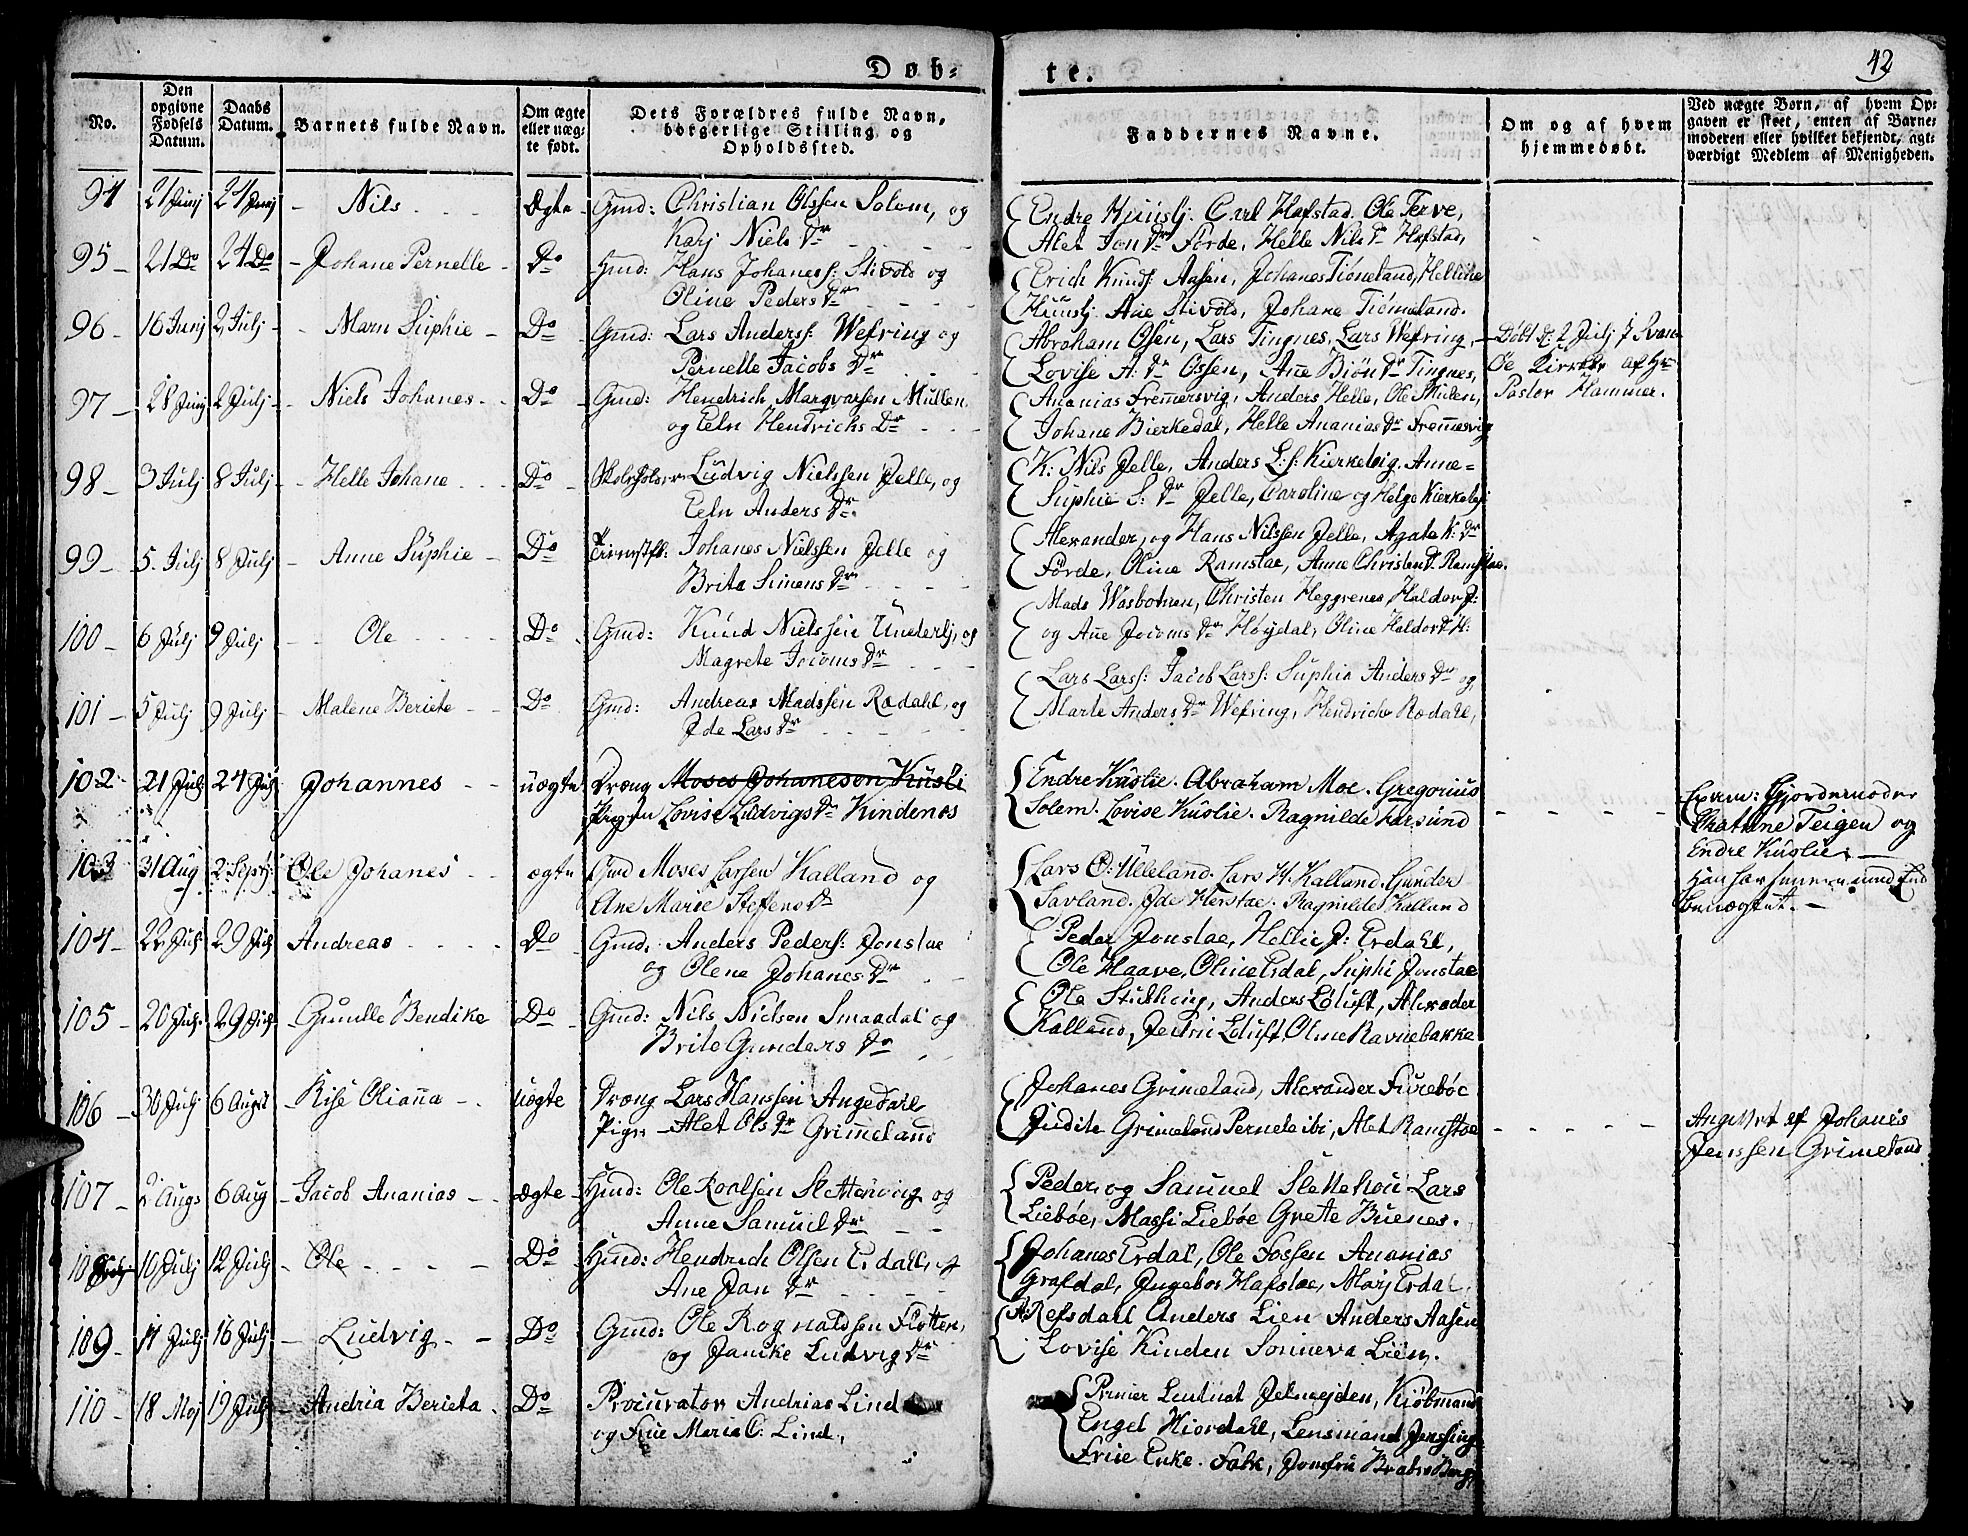 Døb-
te.
42
No.
Den opgivne Fødsels Datum.
Daabs Datum.
Barnets fulde Navn.
Om ægte eller uæg- te født.
Dets Forældres fulde Navn, borgerlige Stilling og Opholdssted.
Faddernes Navne.
Om og af hvem hjemmedøbt.
Ved uægte Børn, af hvem Op- gaven er skeet, enten af Barne- moderen eller hvilket bekjendt, agt- værdigt Medlem af Menigheden.
94 21 Junj 24 Junj - Nils Ægte Gmd: Christian Olssen Solem, og
Karj Niels Dr
Endre Huuslj. Carl Hafstad. Ole Terve,
Alet Jon Dr Förde, Helle Nils Dr Hafstad,
95 - 21 Do 24 Do - Johane Pernelle - Do Hmd: Hans Johaness: Stivold og
Oline Peders Dr
Erich Knuds Aasen, Johanes Tiöneland, Helline
Huuslj Ane Stivold, Johane Tiömeland.
96 - 16 Junj 2 Julj - Marn Suphie - Do Gmd: Lars Anderss: Wefring og
Pernelle Jacobs Dr
Abroham Olsen, Lars Tingnes, Lars Wefring,
Lovise A: Dr Ossen, Ane Biön Dr Tingnes,
Döbt d: 2 Julj i Svan-
Öe Kirke af Hr
Pastor Hammer.
97 - 28 Junj 2 Julj - Niels Johanes Do Gmd: Hendrich Marqvarsen Mullen
og Eeln Hendrichs Dr
Ananias Fremersvig, Anders Helle, Ole Skulen,
Johane Bierkedal, Helle Ananias Dr Fremesvig
98 - 3 Julj 8 Julj - Helle Johane Do Skoleholder Ludvig Nielssen Jelle, og
Eeln Anders Dr.
K: Nils Jelle, Anders L: s: Kierkebig, Anne-
Suphie S: Dr Jelle, Caroline og Helge
99 - 5. Julj 8 Julj - Anne Suphie - Do Johanes Nielssen Jelle og
Brita Simens Dr
Alexander, og Hans Nilssen Jelle, Agate K: Dr
Förde, Oline Ramstae, Anne Christen D. Ramstae.
100 - 6 Julj 9 Julj - Ole Do Gmd: Knud Nielssen Underlj, og
Magrete Jocoms Dr
Mads Wasbotnen, Christen Heggrenes, Haldor J:
og Ane Jocoms Dr Höydal, Oline Haldor D H:
101 - 5 Julj 9 Julj - Malene Beriete Do Gmd: Andreas Madssen Rødahl, og
Jde Lars Dr
Lars Larss: Jacob Larss: Suphia Anders Dr og
Marte Anders Dr Wefring, Hendrich Rødahl,
102 - 21 Julj 24 Julj Johannes uægte Dræng Moses Johanesen Kusli
Pigen Lovise Ludvigs Dr Kindenes
Endre Kuslie. Abraham Moe. Gregorius
Solem. Lovise Kuslie. Ragnilde Farsund
Gjordemoder
Teigen og
Endre Kuslie, -
benægtet. -
103 31 Aug 2 Septj: Ole Johanes ægte Gmd Moses Larsen Kalland og
Ane Marie Steffens Dr
Lars O: Ulleland. Lars H. Kalland. Gunder
Savland. Jde Herstae. Ragnilde Kalland
104 - 22 Julj 29 Julj Andreas Do Gmd. Anders Peders: Jonstae
og Olene Johanes Dr
Peder Jonstae, Hellie J: Erdahl,
Ole Haave, Oline Erdal, Suphi Jonstae
105 - 20 Julj 29 Julj - Gunelle Bendike Do Gmd: Nils Nielsen Smaadal og
Brite Gunders Dr
Ole Anders Löluft, Alexader
Kalland, Jertrü Löluft, Oline Ravnebakke
106 - 30 Julj 6 Augst - Rise Oliana uægte Dræng Lars Hanssen Angedahl
Pige - Alet Ols Dr Grimeland
Johanes Grimeland, Alexander Furebøe
Judite Grimeland Pernele ibi, Alet Ramstae
Angivet af Johanes
Jenssen Grimeland
107 - 2 Augs 6 Aug - Jacob Ananias - ægte - Hmd: Ole Roalsen Slettenvig og
Anne Samuel Dr
Peder og Samuel Slettehou Lars
Liebøe, Massi Liebøe Grete Buenes.
108 10 Julj 12 Julj - Ole Do Hmd: Hendrich Olssen Erdahl, og
Ane Jan Dr
Johanes Erdal, Ole Fossen Ananias
Grafdal, Jngebor Hafstae, Marj Erdal
109 - 11 Julj 16 Julj - Ludvig - Do Gmd: Ole Rognaldsen Flötten,
og Janike Ludvig Dr
A: Refsdahl Anders Lien Anders Aasen
Lovise Kinden Sonneva Lien.
110 - 18 Maj 19 Julj - Andria Berieta Do Procurator Andrias Lind
og Frue Maria C: Lind,
Premier Leutnat Kiöbmand
Engel Hiordahl, Lensmand
Frue Enke. Falk, Jomfru